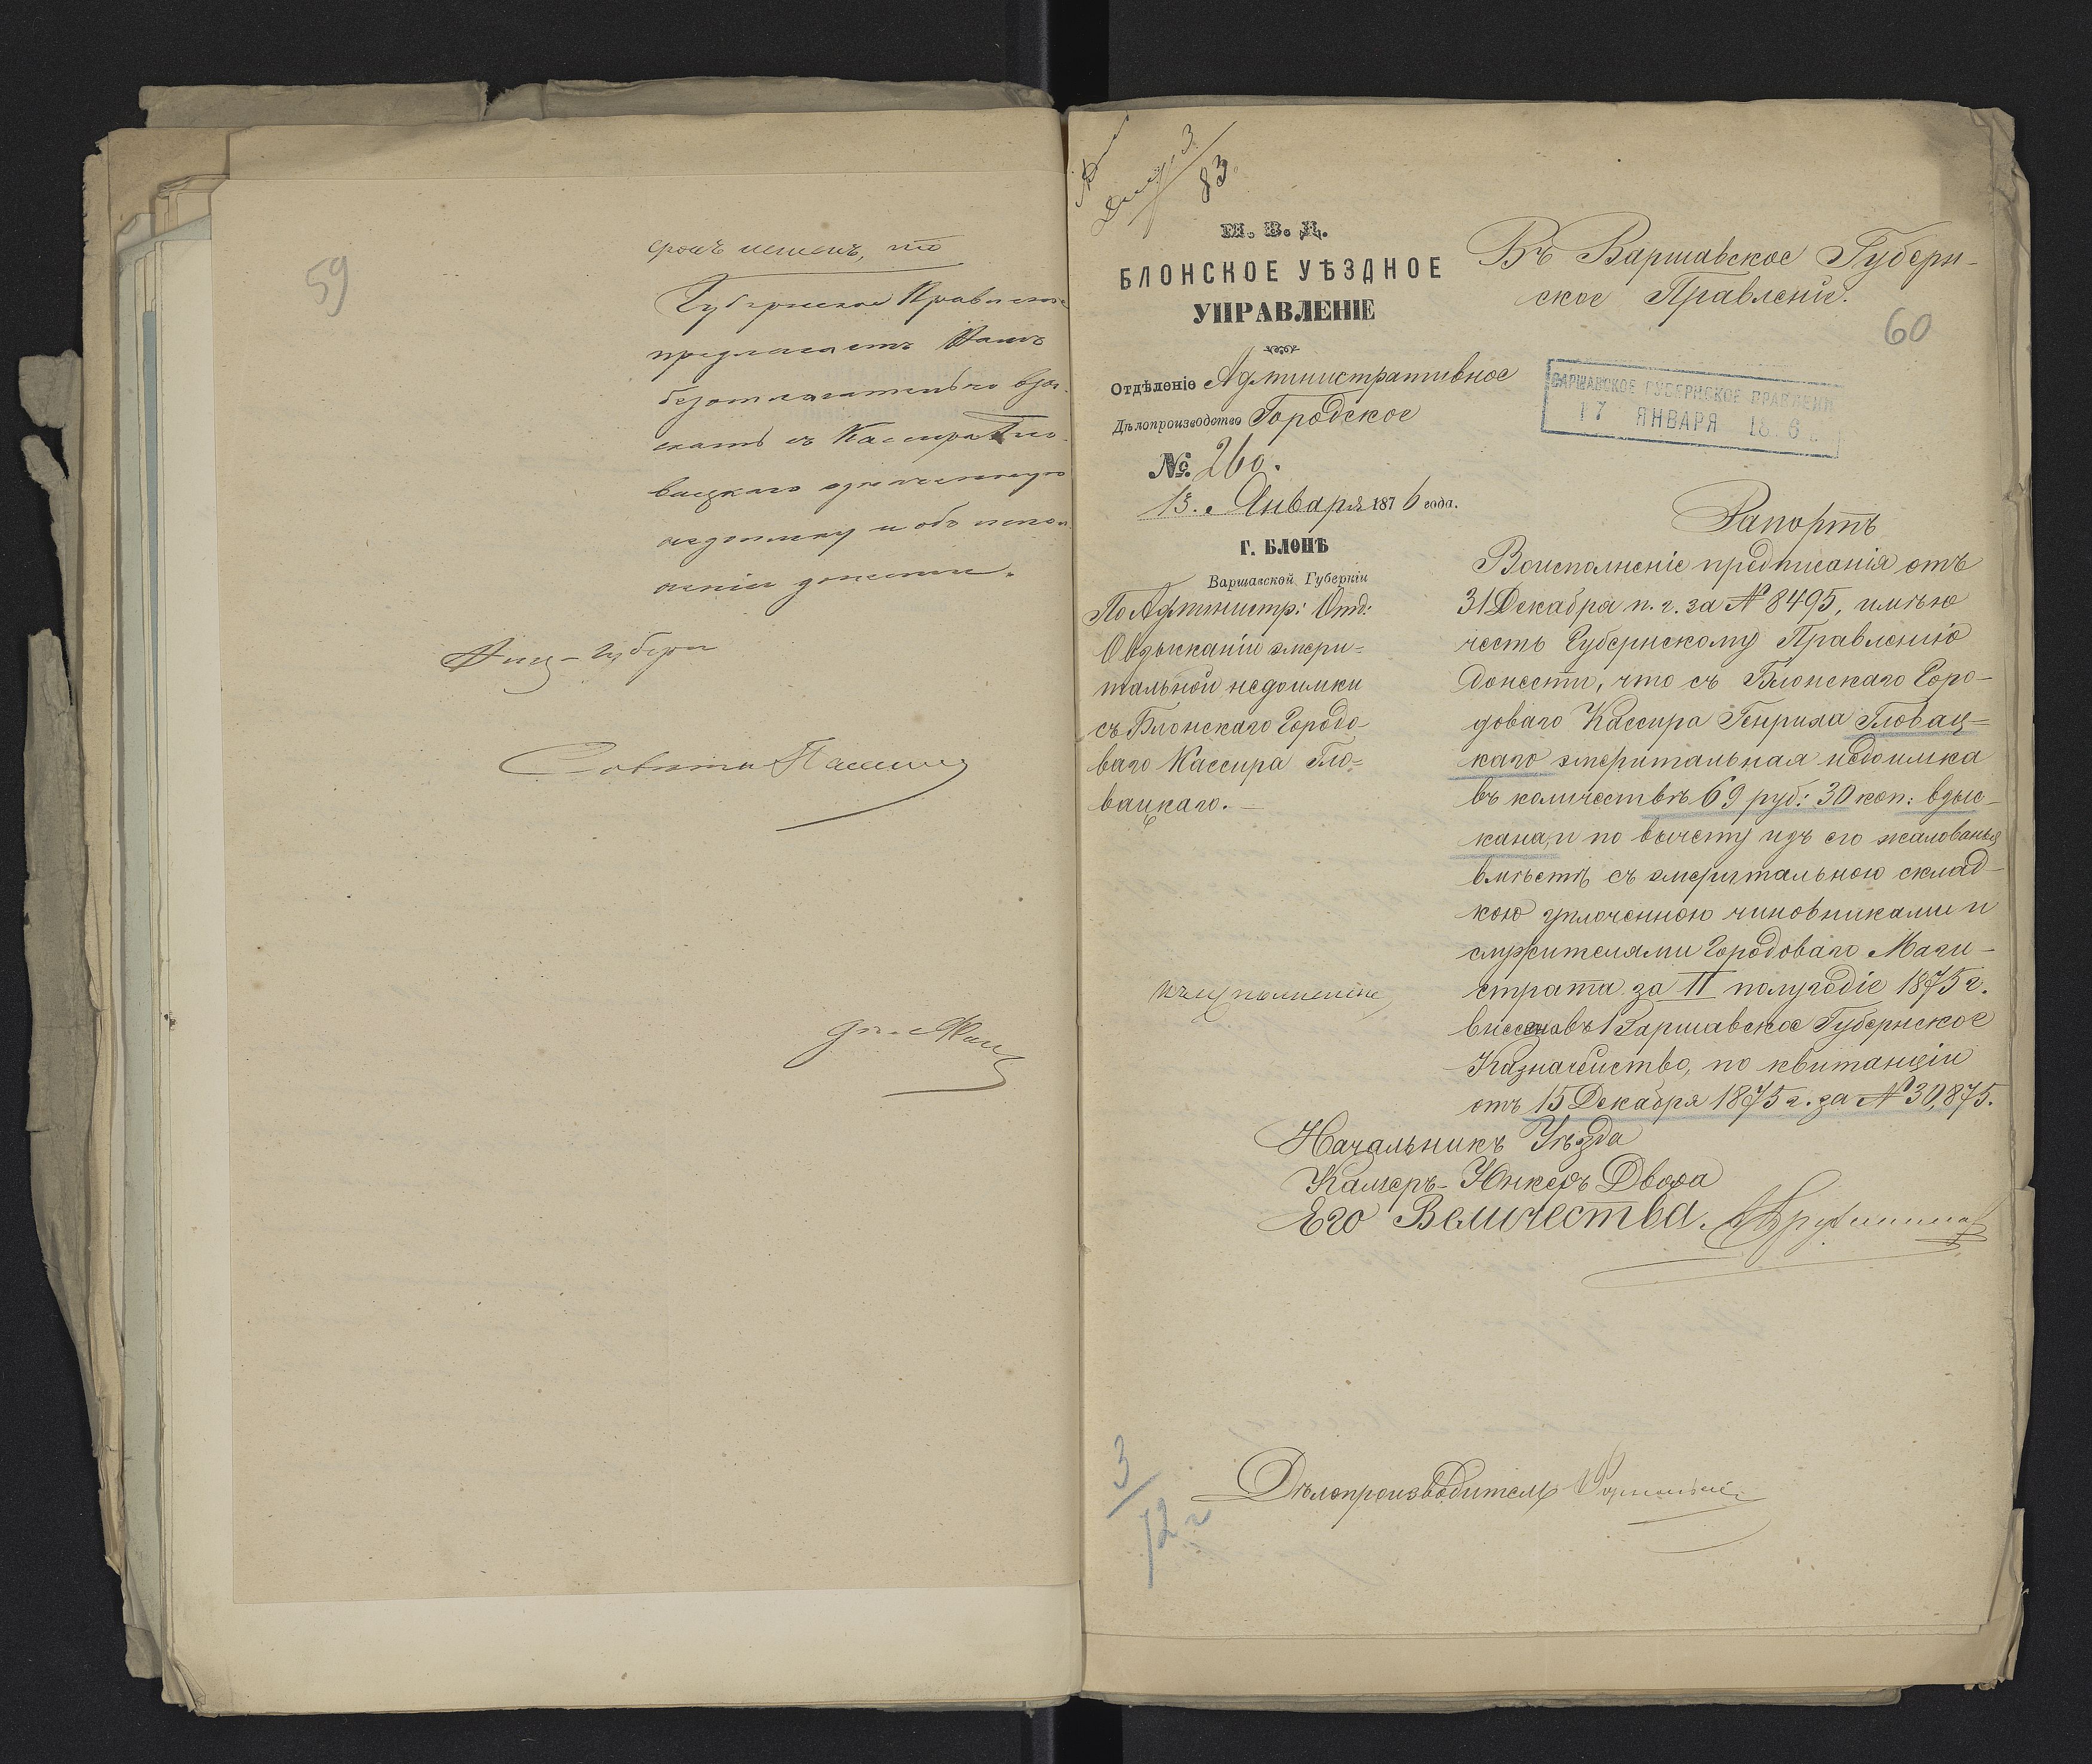 59
срокъ истекъ, то
Губернское Правленіе
предлагаетъ Вамъ
безотлагательно взы-
скать съ Кассира Гло-
вацкаго означенную
недоимку и объ испол-
неніи донести.
Вице-Губерн
Совѣтн
83.
М. В. Д.
БЛОНСКОЕ УѢЗДНОЕ
УПРАВЛЕНІЕ
Отдѣленіе Административное
Дѣлопроизводство Городское
№ 260.
13. Января 1876 года.
Г. БЛОНѢ
Варшавской Губерніи
По Администр: Отд:
О взысканіи эмери=
тальной недоимки
съ Блонскаго Городо-
ваго Кассира Гло=
вацкаго.—
Въ Варшавское Губерн-
ское Правленіе.
60
ВАРШАВСКОЕ ГУБЕРНСКОЕ ПРАВЛЕНІ
17 ЯНВАРЯ 18 6
Рапортъ
Воисполненіе предписанія отъ
31 Декабря п. г. за № 8495, имѣю
честь Губернскому Правленію
донести, что съ Блонскаго Горо-
доваго Кассира Генриха Гловац=
каго эмеритальная недоимка
въ количествѣ 69 руб: 30 коп: взыс-
кана, и по вычету изъ его жалованья
вмѣстѣ съ эмеритальною склад-
кою уплоченною чиновниками и
служителями Городоваго Маги-
страта за II полугодіе 1875 г.
внесена въ Варшавское Губернское
Казначейство, по квитанціи
отъ 15 Декабря 1875 г. за № 30,875.
Къ исполненію
Начальникъ Уѣзда
Камеръ-Юнкеръ Двора
Его Величества
Дѣлопроизводитель
3/12